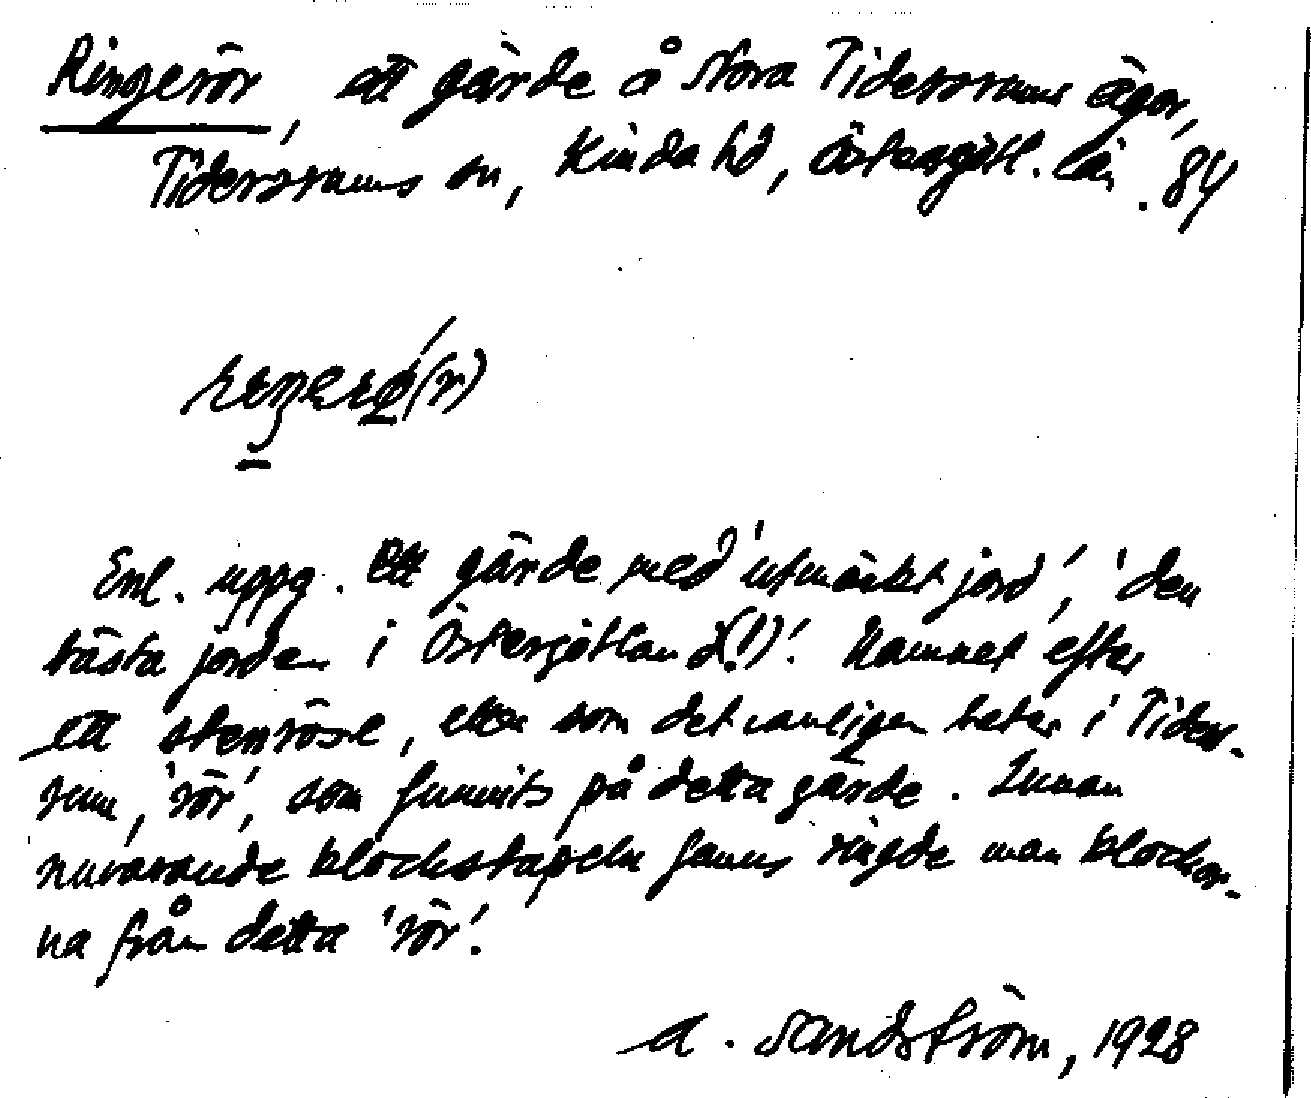 Ringerör, ett gärde å Norra Tidersrums ägor,
Tidersrums sn, Kinda hd, Östergötl. län. 84
Enl. uppg. ett gärde med 'utmärkt jord', 'den
bästa jorden i Östergötland(!)'. Namnet efter
ett stenröse, eller som det vanligen heter i Tiders-
rum, 'rör', som funnits på detta gärde. Innan
nuvarande klockstapeln fanns ringde man klockor-
na från detta 'rör'.
A. Sandström, 1928